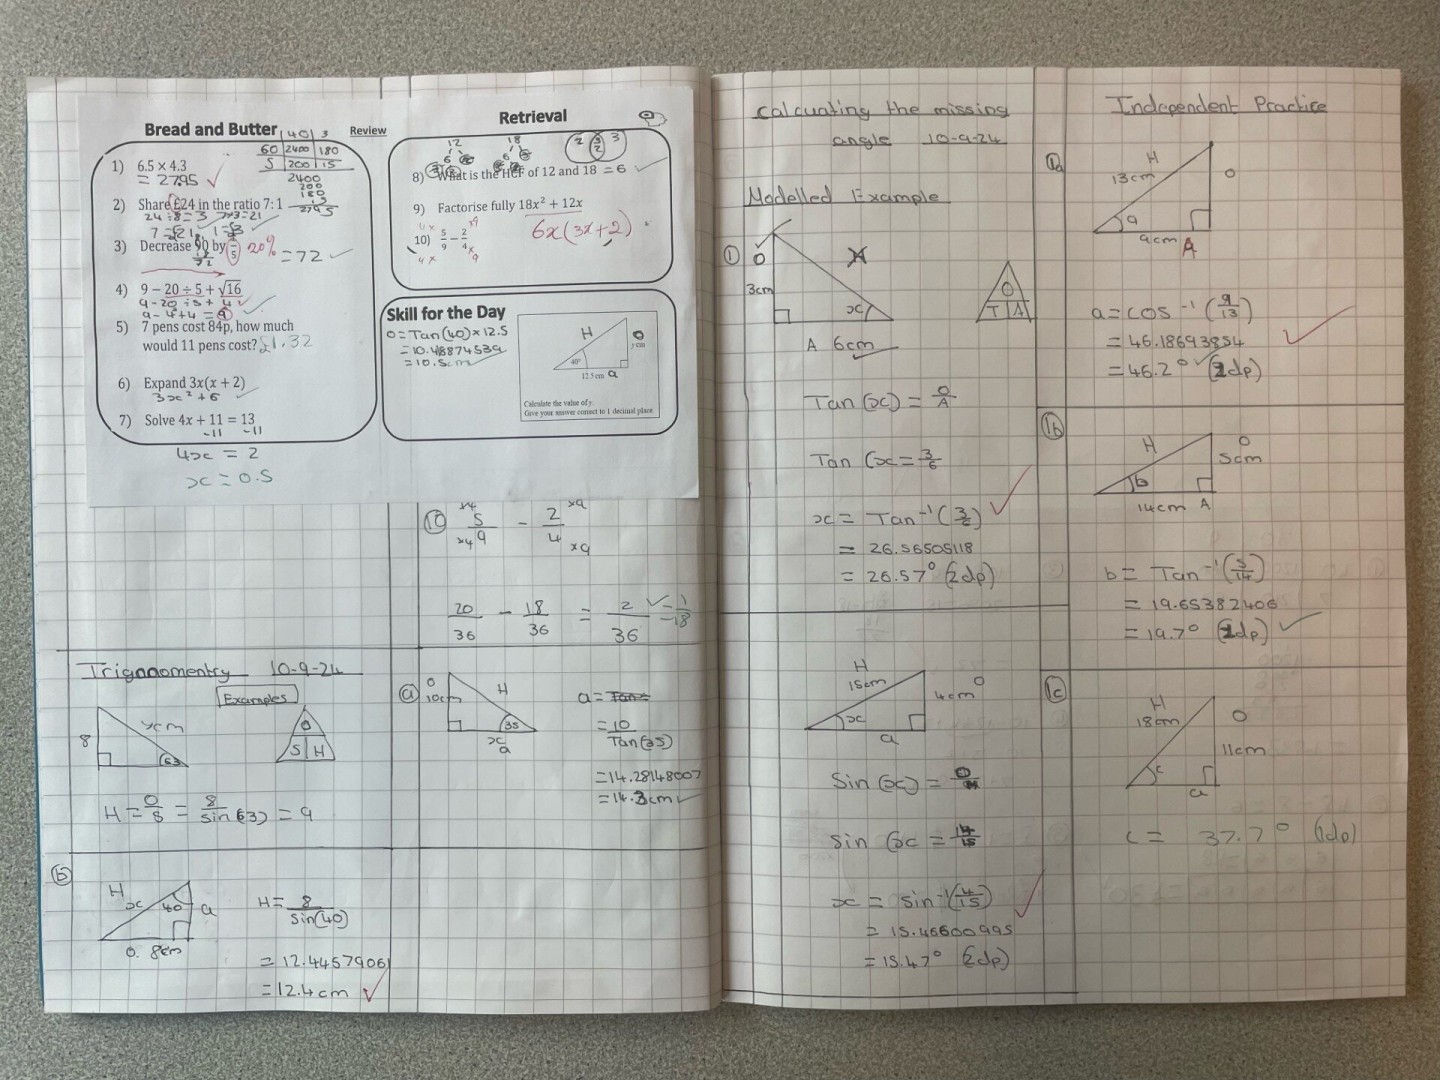 Bread and Butter
Review
40 3
60 2400 180
5 200 15
2400
200
180
15
2795
1) 6.5 × 4.3
= 27.95
2) Share £24 in the ratio 7:1
24 ÷ 8 = 3 7×3=21
7 = £21 1 = £3
3) Decrease 90 by 1/5 20% = 72
18
72
4) 9 − 20 ÷ 5 + √16
9 - 20 ÷ 5 + 4
9 - 4 + 4 = 9
5) 7 pens cost 84p, how much
would 11 pens cost? £1.32
6) Expand 3x(x + 2)
3x² + 6
7) Solve 4x + 11 = 13
-11 -11
4x = 2
x = 0.5
Retrieval
12 18
2 3 3
2
8) What is the HCF of 12 and 18 = 6
9) Factorise fully 18x² + 12x
6x(3x+2)
10) 5/9 − 2/4
4x x9
4x x9
Skill for the Day
O = Tan(40) × 12.5
= 10.48874539
= 10.5cm
H
O
y cm
40°
12.5 cm a
Calculate the value of y.
Give your answer correct to 1 decimal place.
10 x4 5/9 - 2/4 x9
x4 x9
20/36 - 18/36 = 2/36 = 1/18
Trigonomentry 10-9-24
Examples
8
ycm
63
O
S H
H = O/8 = 8/sin(63) = 9
a
O
10cm
H
35
x
a
a = Tan
= 10/Tan(35)
= 14.28148007
= 14.3cm
b
H
x
40
a
O. 8cm
H = 8/sin(40)
= 12.44579061
= 12.4cm
Calcuating the missing
angle 10-9-24
Modelled Example
1
O
3cm
H
x
A 6cm
O
T A
Tan(x) = O/A
Tan(x = 3/6
x = Tan⁻¹(3/6)
= 26.56505118
= 26.57° (2dp)
H
15cm
4cm O
x
a
Sin(x) = O/H
Sin(x = 4/15
x = sin⁻¹(4/15)
= 15.46600995
= 15.47° (2dp)
Independent Practice
1a
H
13cm
O
a
9cm A
a = cos⁻¹(9/13)
= 46.18693854
= 46.2° (1dp)
1b
H
O
5cm
b
14cm A
b = Tan⁻¹(5/14)
= 19.65382406
= 19.7° (1dp)
1c
H
18cm
O
11cm
c
a
c = 37.7° (1dp)